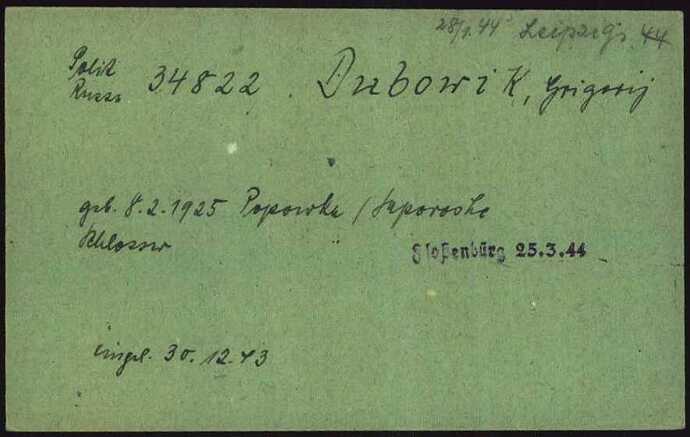 28/1.44 Leipzig 44
Polit
Russe 34822 Dubowik, Grigorij
geb. 8.2.1925 Popowka / Saporoshe
Schlosser
Floßenbürg 25.3.44
eingel. 30.12.43